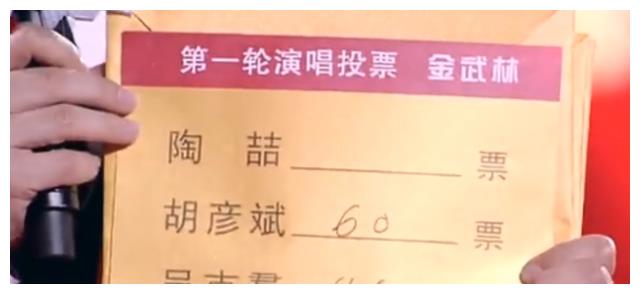 第一轮演唱投票 金武林
陶 喆 票
胡彦斌 60 票